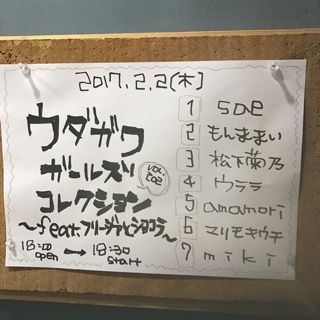 2017.2.2(木)
ウダガワ
ガールズ
コレクション
vol.
～feat.フリージアとショコラ～
18:00 → 18:30
open start
1 SOE
2 もんままい
3 松下菊乃
4 ウララ
5 amamori
6 マリモキウチ
7 miki